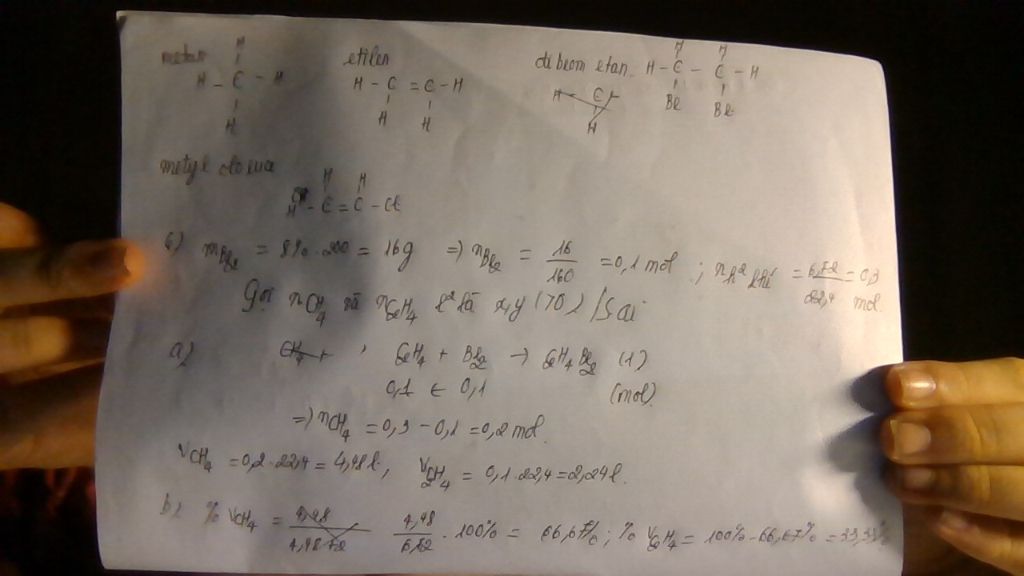 metan etilen đibrom etan
H H H
H - C - H H - C = C - H H - C - C - H
H H H Br Br
H C
H
metyl clorua
H H
H - C = C - Cl
6) mBr2 = 8% . 200 = 16g => nBr2 = 16/160 = 0,1 mol ; nh2 khí = 6,72/22,4 = 0,3 mol.
Gọi nCH4 và nC2H4 l2 là x, y (>0) / Sai
a) CH4 + , C2H4 + Br2 → C2H4Br2 (1)
0,1 ← 0,1 (mol)
=> nCH4 = 0,3 - 0,1 = 0,2 mol.
VCH4 = 0,2 . 22,4 = 4,48 l, VC2H4 = 0,1 . 22,4 = 2,24 l.
b) % VCH4 = 4,48/6,72 . 100% = 66,67% ; % VC2H4 = 100% - 66,67% = 33,33%